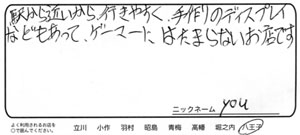 駅から近いから、行きやすく、手作りのディスプレイ
などもあって、ゲーマーにはたまらないお店です
ニックネーム you
よく利用されるお店を
○で囲んでください。 立川 小作 羽村 昭島 青梅 高幡 堀之内 八王子